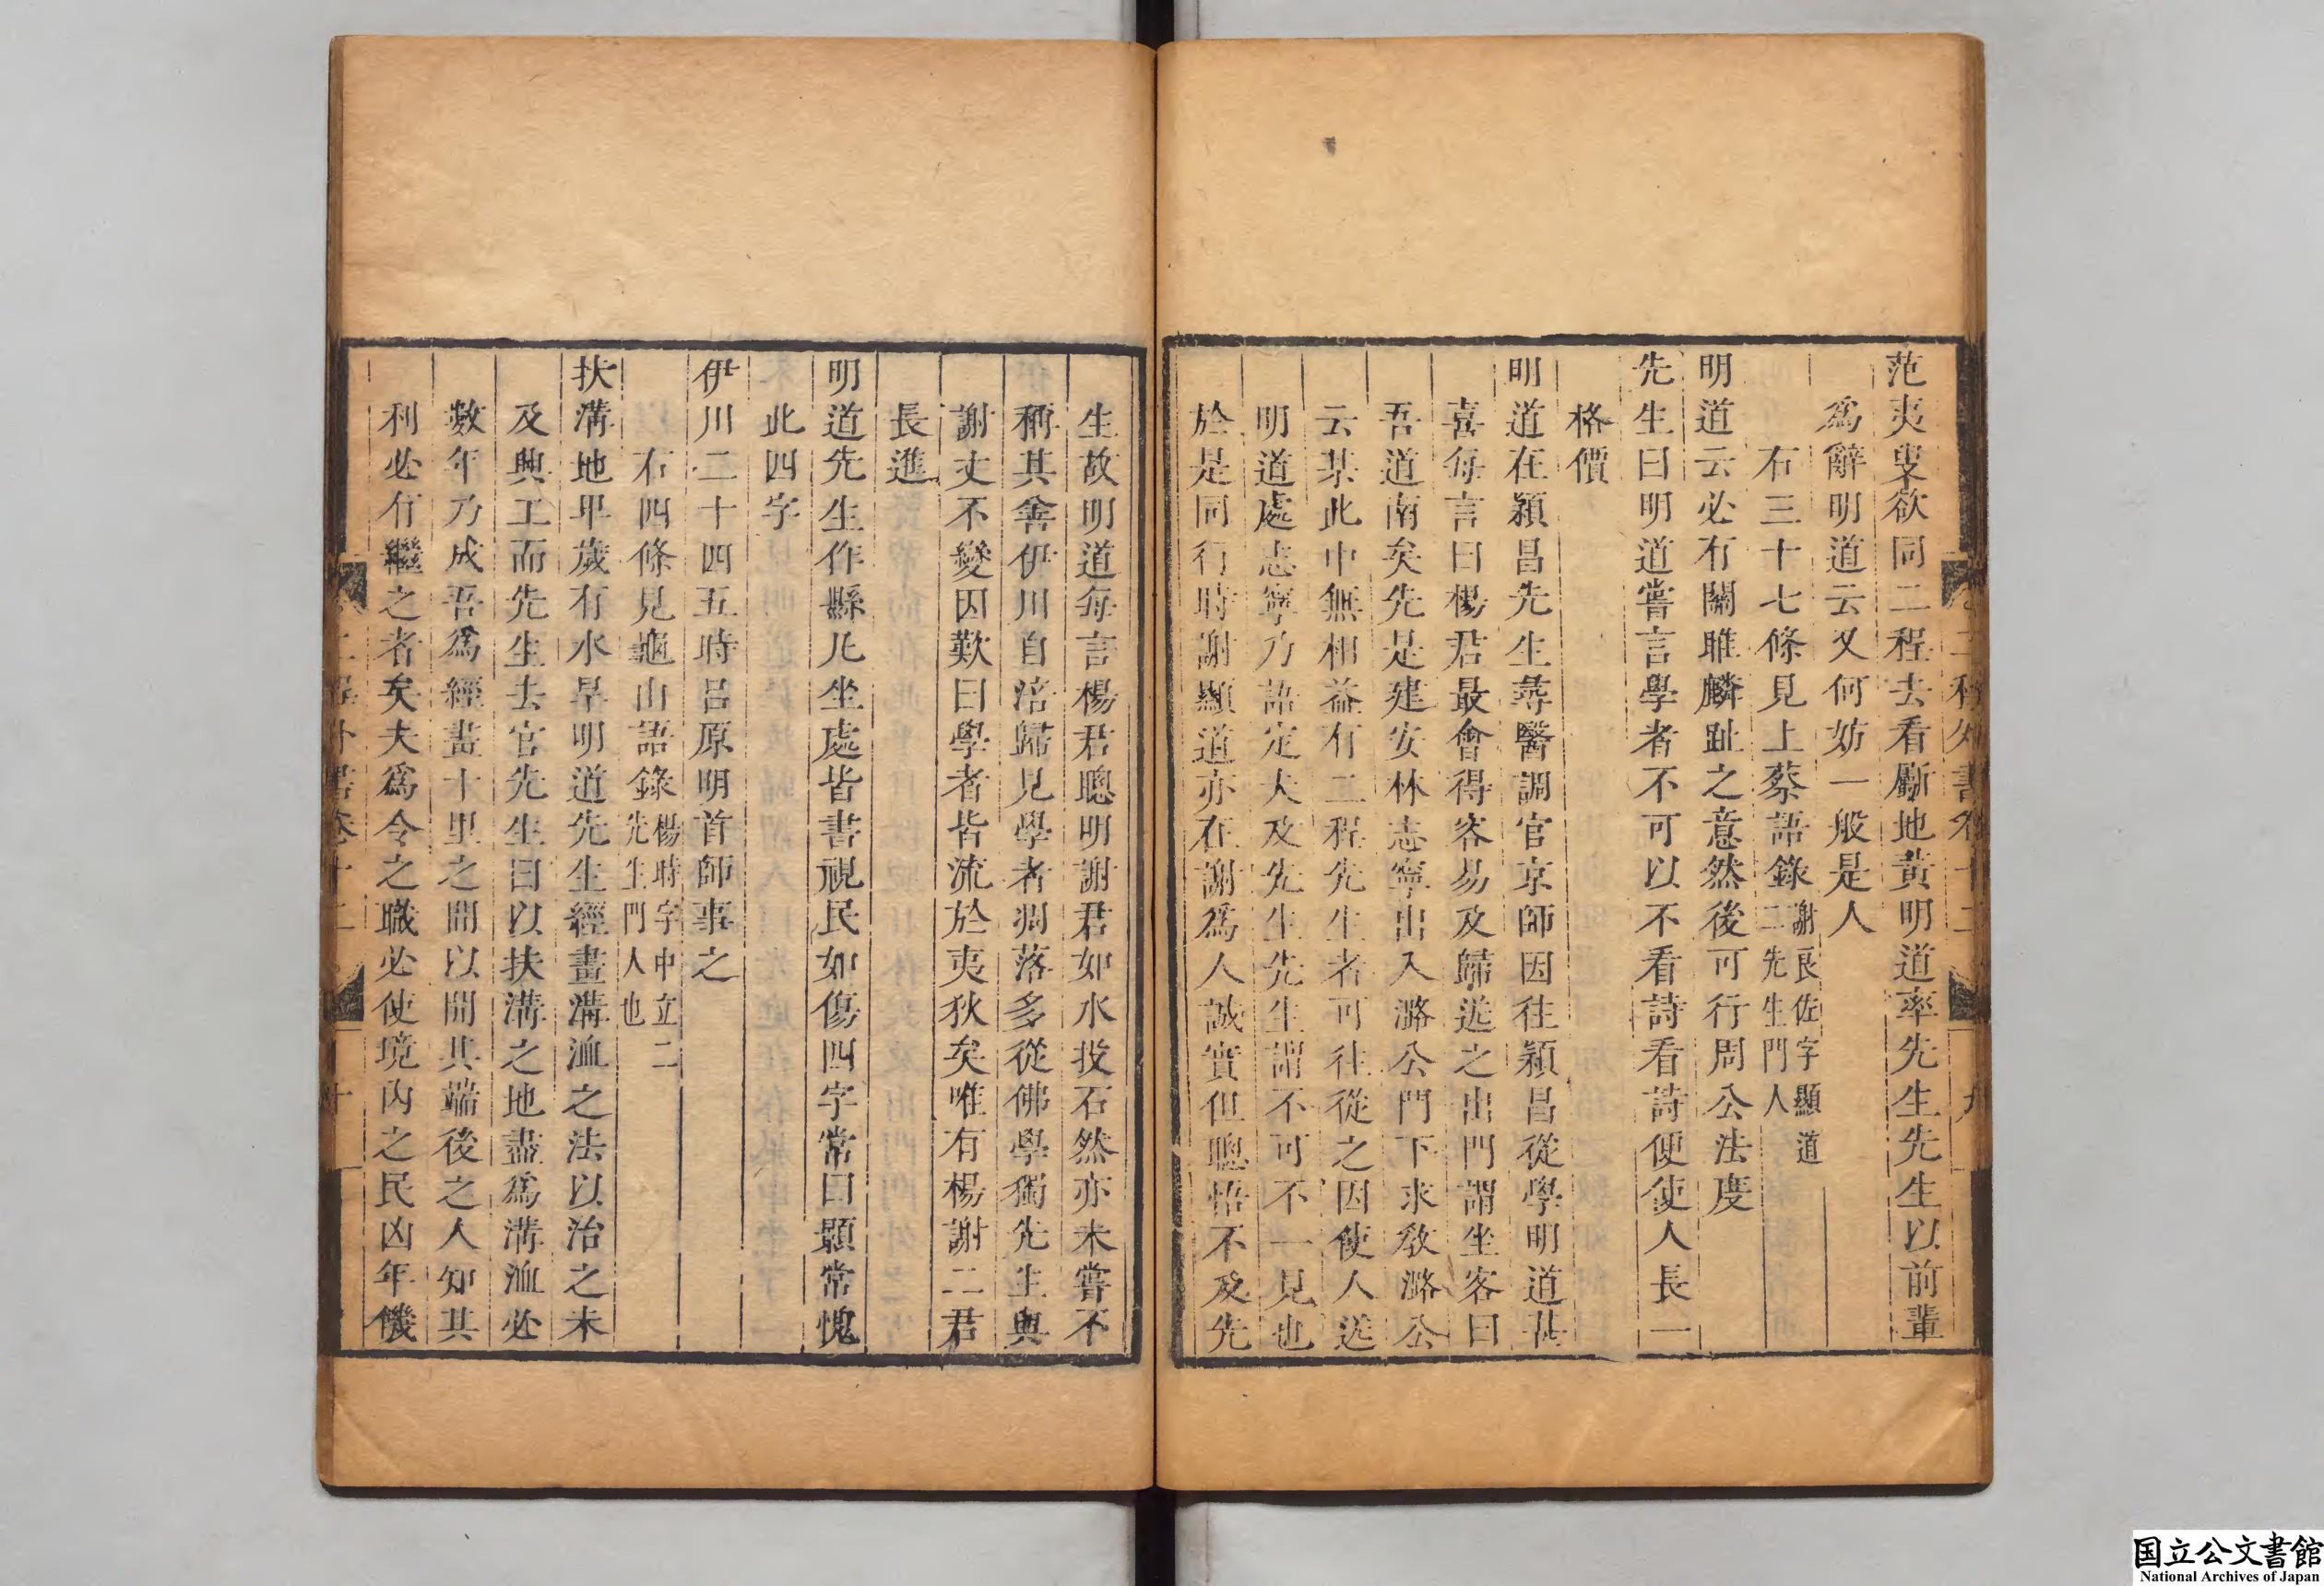 范夷叟欲同二程去看廝地黃明道率先生先生以前輩
爲辭明道云又何妨一般是人
右三十七條見上蔡語錄謝良佐字顯道二先生門人
明道云必有關雎麟趾之意然後可行周公法度
先生曰明道嘗言學者不可以不看詩看詩便使人長一
格價
明道在潁昌先生尋醫調官京師因往潁昌從學明道甚
喜每言曰楊君最會得容易及歸送之出門謂坐客曰
吾道南矣先是建安林志寧出入潞公門下求教潞公
云某此中無相益有二程先生者可往從之因使人送
明道處志寧乃語定夫及先生先生謂不可不一見也
於是同行時謝顯道亦在謝爲人誠實但聰悟不及先
生故明道每言楊君聰明謝君如水投石然亦未嘗不
稱其善伊川自涪歸見學者凋落多從佛學獨先生與
謝丈不變因歎曰學者皆流於夷狄矣唯有楊謝二君
長進
明道先生作縣凡坐處皆書視民如傷四字常曰顥常愧
此四字
伊川二十四五時呂原明首師事之
右四條見龜山語錄楊時字中立二先生門人也
扶溝地卑歲有水旱明道先生經畫溝洫之法以治之未
及興工而先生去官先生曰以扶溝之地盡爲溝洫必
數年乃成吾爲經畫十里之間以開其端後之人知其
利必有繼之者矣夫爲令之職必使境內之民凶年饑
国立公文書館
National Archives of Japan